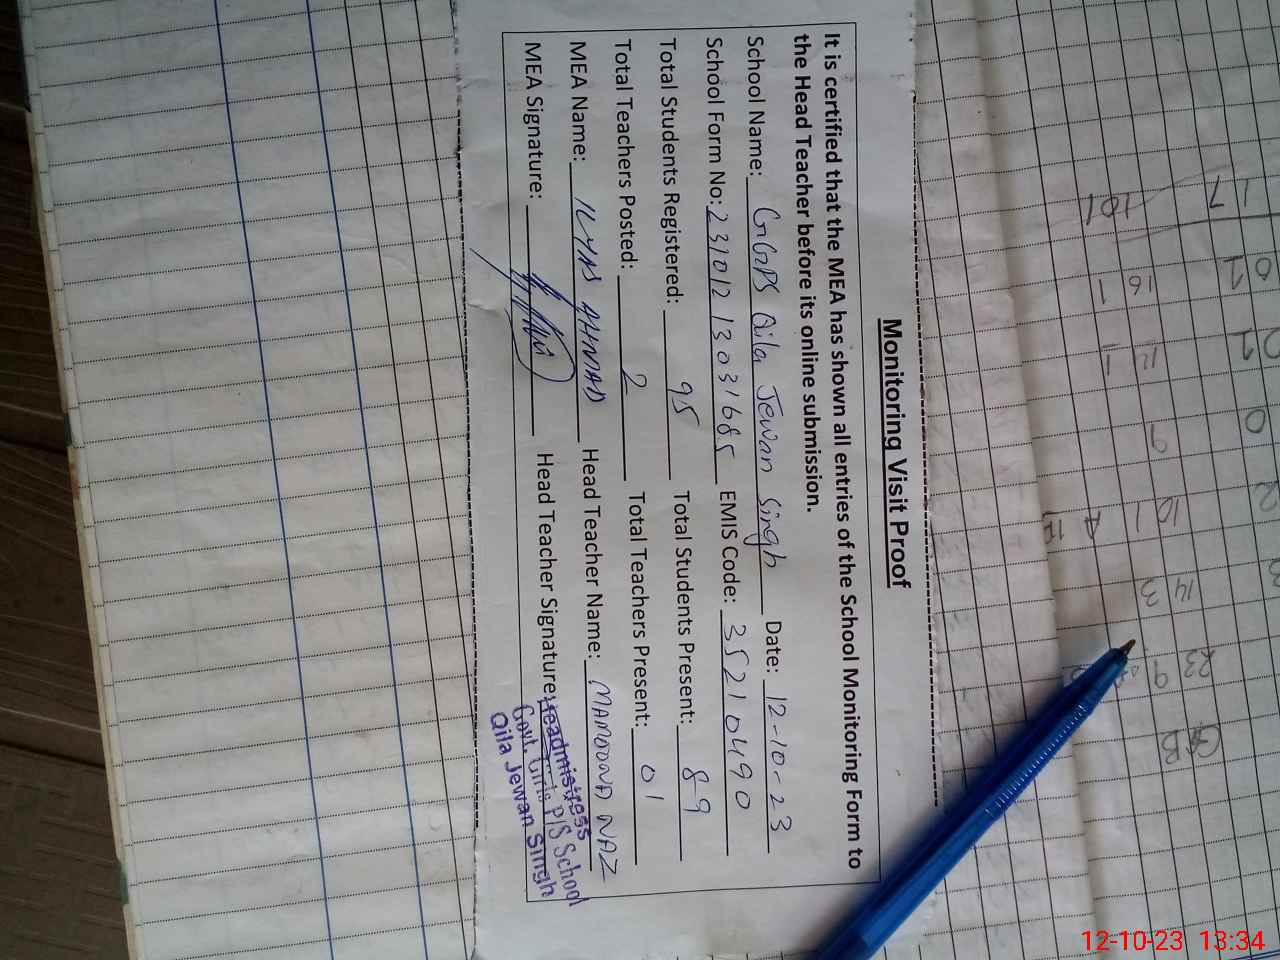 Monitoring Visit Proof
It is certified that the MEA has shown all entries of the School Monitoring Form to
the Head Teacher before its online submission.
School Name: GGPS Qila Jewan Singh Date: 12-10-23
School Form No: 23101213031685 EMIS Code: 35210490
Total Students Registered: 95 Total Students Present: 89
Total Teachers Posted: 2 Total Teachers Present: 01
MEA Name: ILYAS AHMAD Head Teacher Name: MAMOONA NAZ
MEA Signature: Head Teacher Signature:
Headmistress
Govt. Girls P/S School
Qila Jewan Singh
12-10-23 13:34